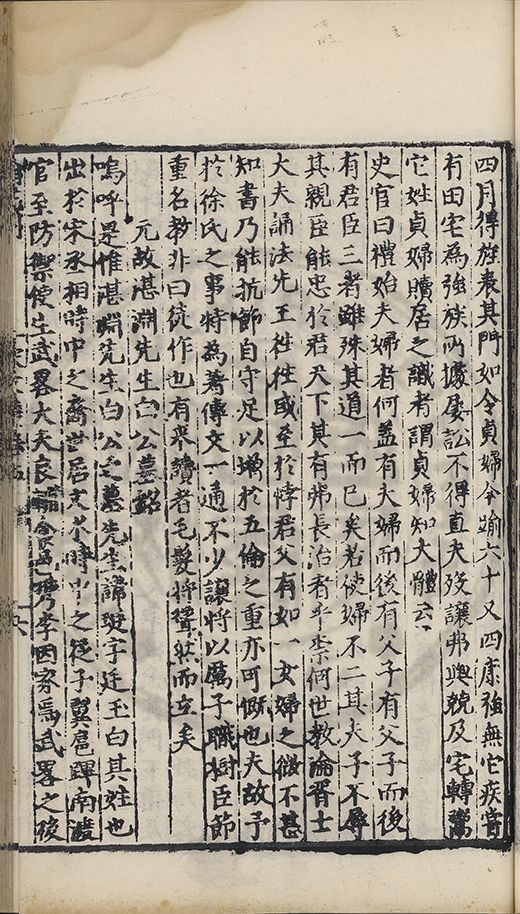 四月得旌表其門如令貞婦今踰六十又四康強無它疾嘗
有田宅為強族所據屢訟不得直夫歿讓弗與競及宅轉鬻
它姓貞婦贖居之識者謂貞婦知大體云
史官曰禮始夫婦者何蓋有夫婦而後有父子有父子而後
有君臣三者雖殊其道一而已矣若使婦不二其夫子不辱
其親臣能忠於君天下其有弗長治者乎柰何世教淪胥士
大夫誦法先王徃徃或至於悖君父有如一女婦之微不甚
知書乃能抗節自守足以增於五倫之重亦可慨也夫故予
於徐氏之事特為著傳文一通不少讓將以厲子職樹臣節
重名教非曰徒作也有来讀者毛髮將豎然而立矣
元故湛淵先生白公墓銘
嗚呼是惟湛淵先生白公之墓先生諱珽字廷玉白其姓也
出於宋丞相時中之裔世居文水時中之從子翼扈蹕南渡
官至防禦使生武畧大夫良 李因家焉武畧之後